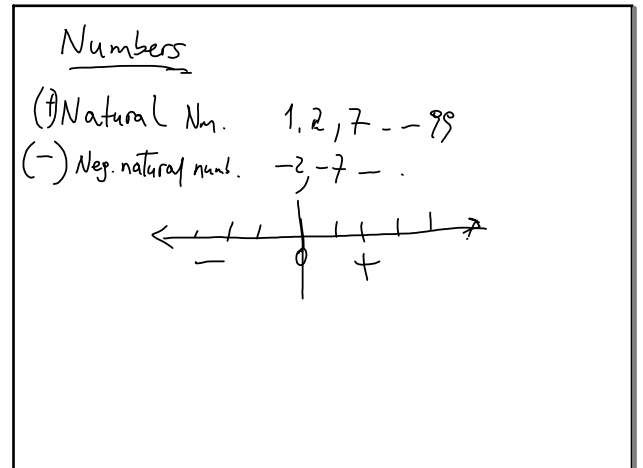 Numbers
(+) Natural Nm. 1, 2, 7 - - 99
(-) Neg. natural numb. -2, -7 - .
0
- +